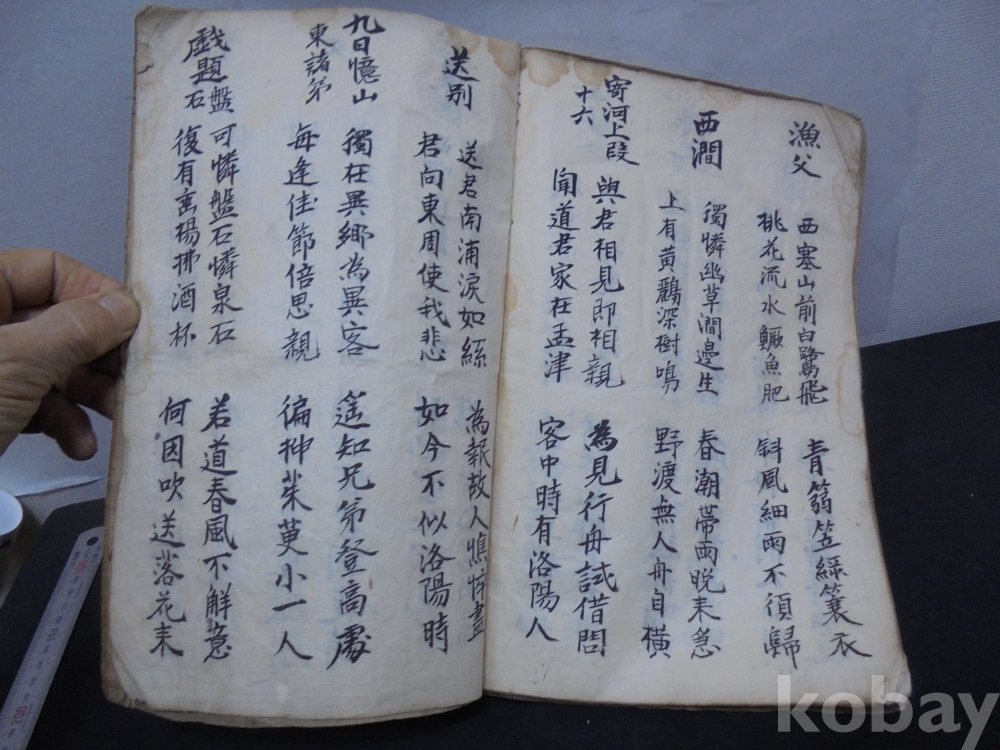 漁父
西塞山前白鷺飛
桃花流水鱖魚肥
青篛笠綠簑衣
斜風細雨不須歸
西澗
獨憐幽草澗邊生
上有黃鸝深樹鳴
春潮帶雨晚来急
野渡無人舟自橫
寄河上段
十六
與君相見即相親
聞道君家在孟津
為見行舟試借問
客中時有洛陽人
送別
送君南浦淚如絲
君向東周使我悲
為報故人憔悴盡
如今不似洛陽時
九日憶山
東諸第
獨在異鄉為異客
每逢佳節倍思親
遙知兄弟登高處
徧揷茱萸小一人
戱題盤
石
可憐盤石憐泉石
復有垂楊拂酒杯
若道春風不解意
何因吹送落花来
kobay